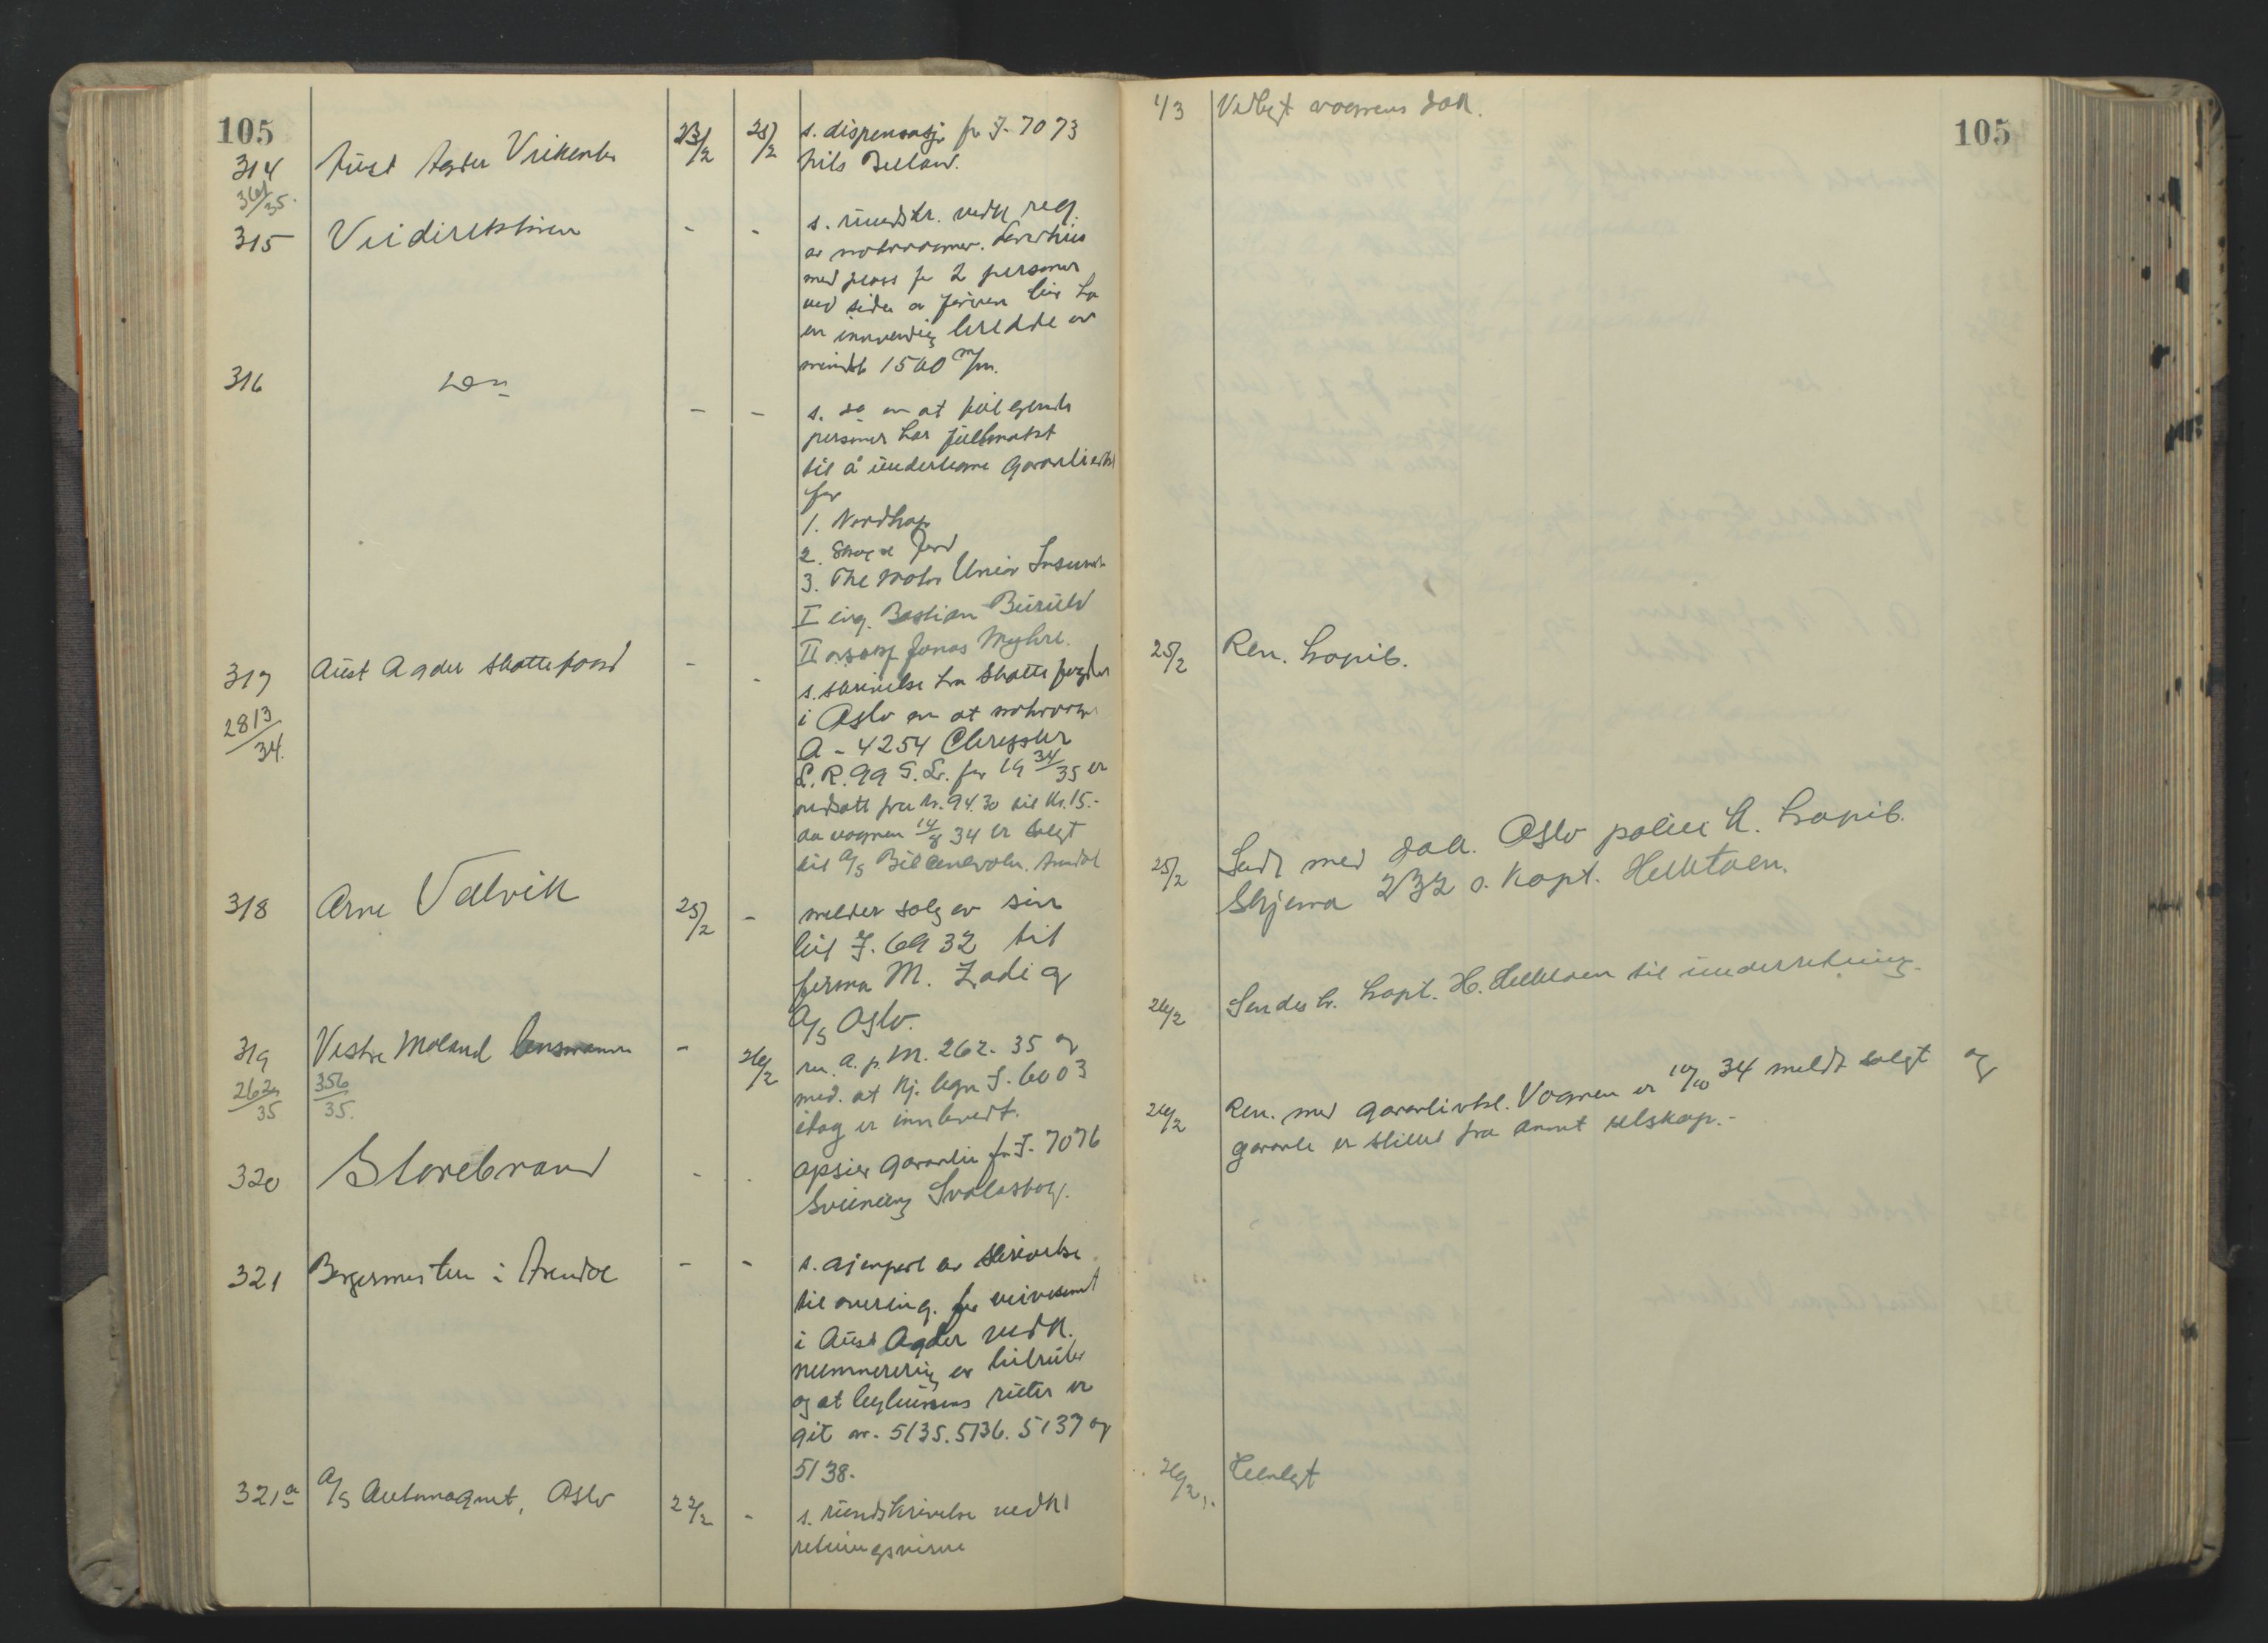 105
314 Aust Agder Veikontor 23/2 25/2 s. dispensasj. for I- 7073
361/35. Nils Beeland.
315 Veidirektøren - - s. rundskr. vedk. reg.
av motorvogner. Førerhus
med plass for 2 personer
ved siden av føreren bør ha
en innvendig bredde av
mindst 1500 m/m.
316 Don - - s. do om at følgende
personer har fullmakt
til å undertegne garantierkl
for
1. Nordkap
2. Skog
3. The Motor Union Insuran
I ing. Bastian
II Jonas Myhre.
317 Aust Agder skattefogd - - s. skrivelse fra Skattefogden
2813/34. i Oslo om at motorvogn
A - 4254 Chrysler
for 19 34/35 er
nedsatt fra kr. 94.30 til kr. 15.-
da vognen 14/8 34 er solgt
til A/S Bilcentralen. Arendal
318 Arne Valvik 25/2 - melder salg av sin
bil I. 6932 til
firma M. Zadig
A/S Oslo.
319 Vestre Moland lensmann - 26/2 ren. a. p. M. 262. 35 og
262/35 356/35. med. at kj. tegn I. 6003
idag er innlevert.
320 Storebrand - - opsier garantien for I- 7076
Sveinung Svalastog.
321 Borgermesteren i Arendal - - s. gjenpart av skrivelse
til overing. for veivesenet
i Aust Agder vedk.
nummerering av bilruter
og at byens ruter er
git nr. 5135. 5136. 5137 og
5138.
321a A/S Automagnet, Oslo 22/2 - s. rundskrivelse vedk
retningsvisere
105
1/3 Vedlagt vognens dok.
25/2 Ren. hapit.
25/2 Sendt med dok. Oslo politi k. hapit.
Skjema 232 s. Kapt. Helktoen.
26/2 Sendes hr. Kapt. H. Helktoen til underretning.
26/2 Ren. med garantierkl. Vognen er 10/10 34 meldt solgt og
garanti er stillet fra annet selskap.-
26/2 Henlagt